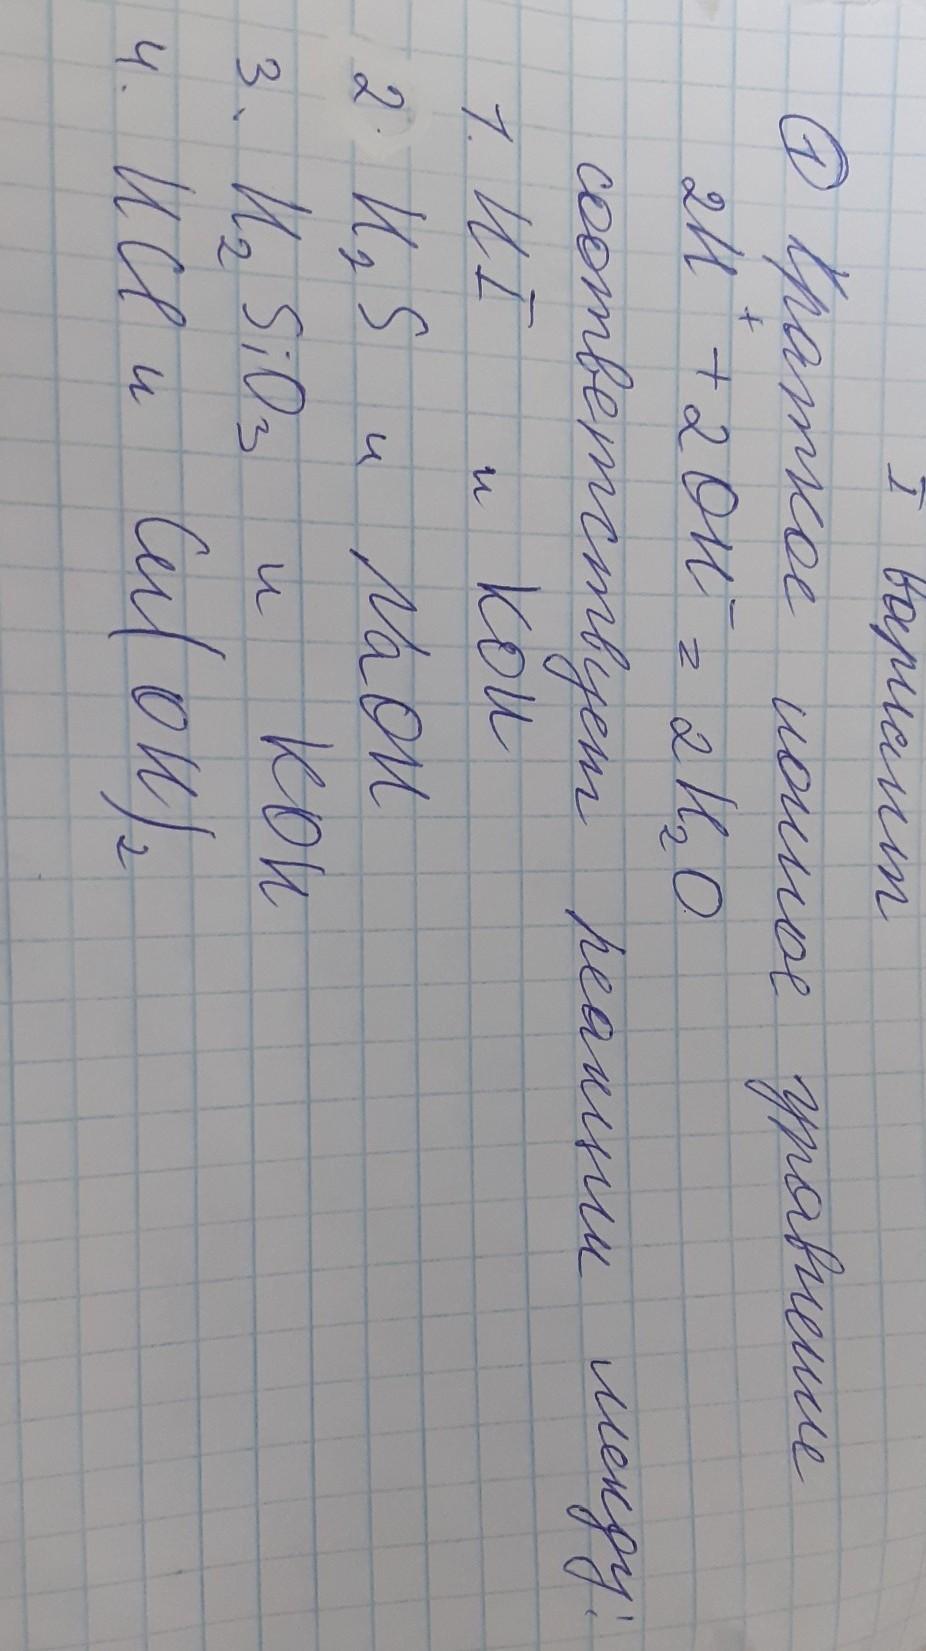 I вариант
① Краткое ионное уравнение
2H⁺ + 2OH⁻ = 2H₂O
соответствует реакции между:
1. HI и KOH
2. H₂S и NaOH
3. H₂SiO₃ и KOH
4. HCl и Cu(OH)₂